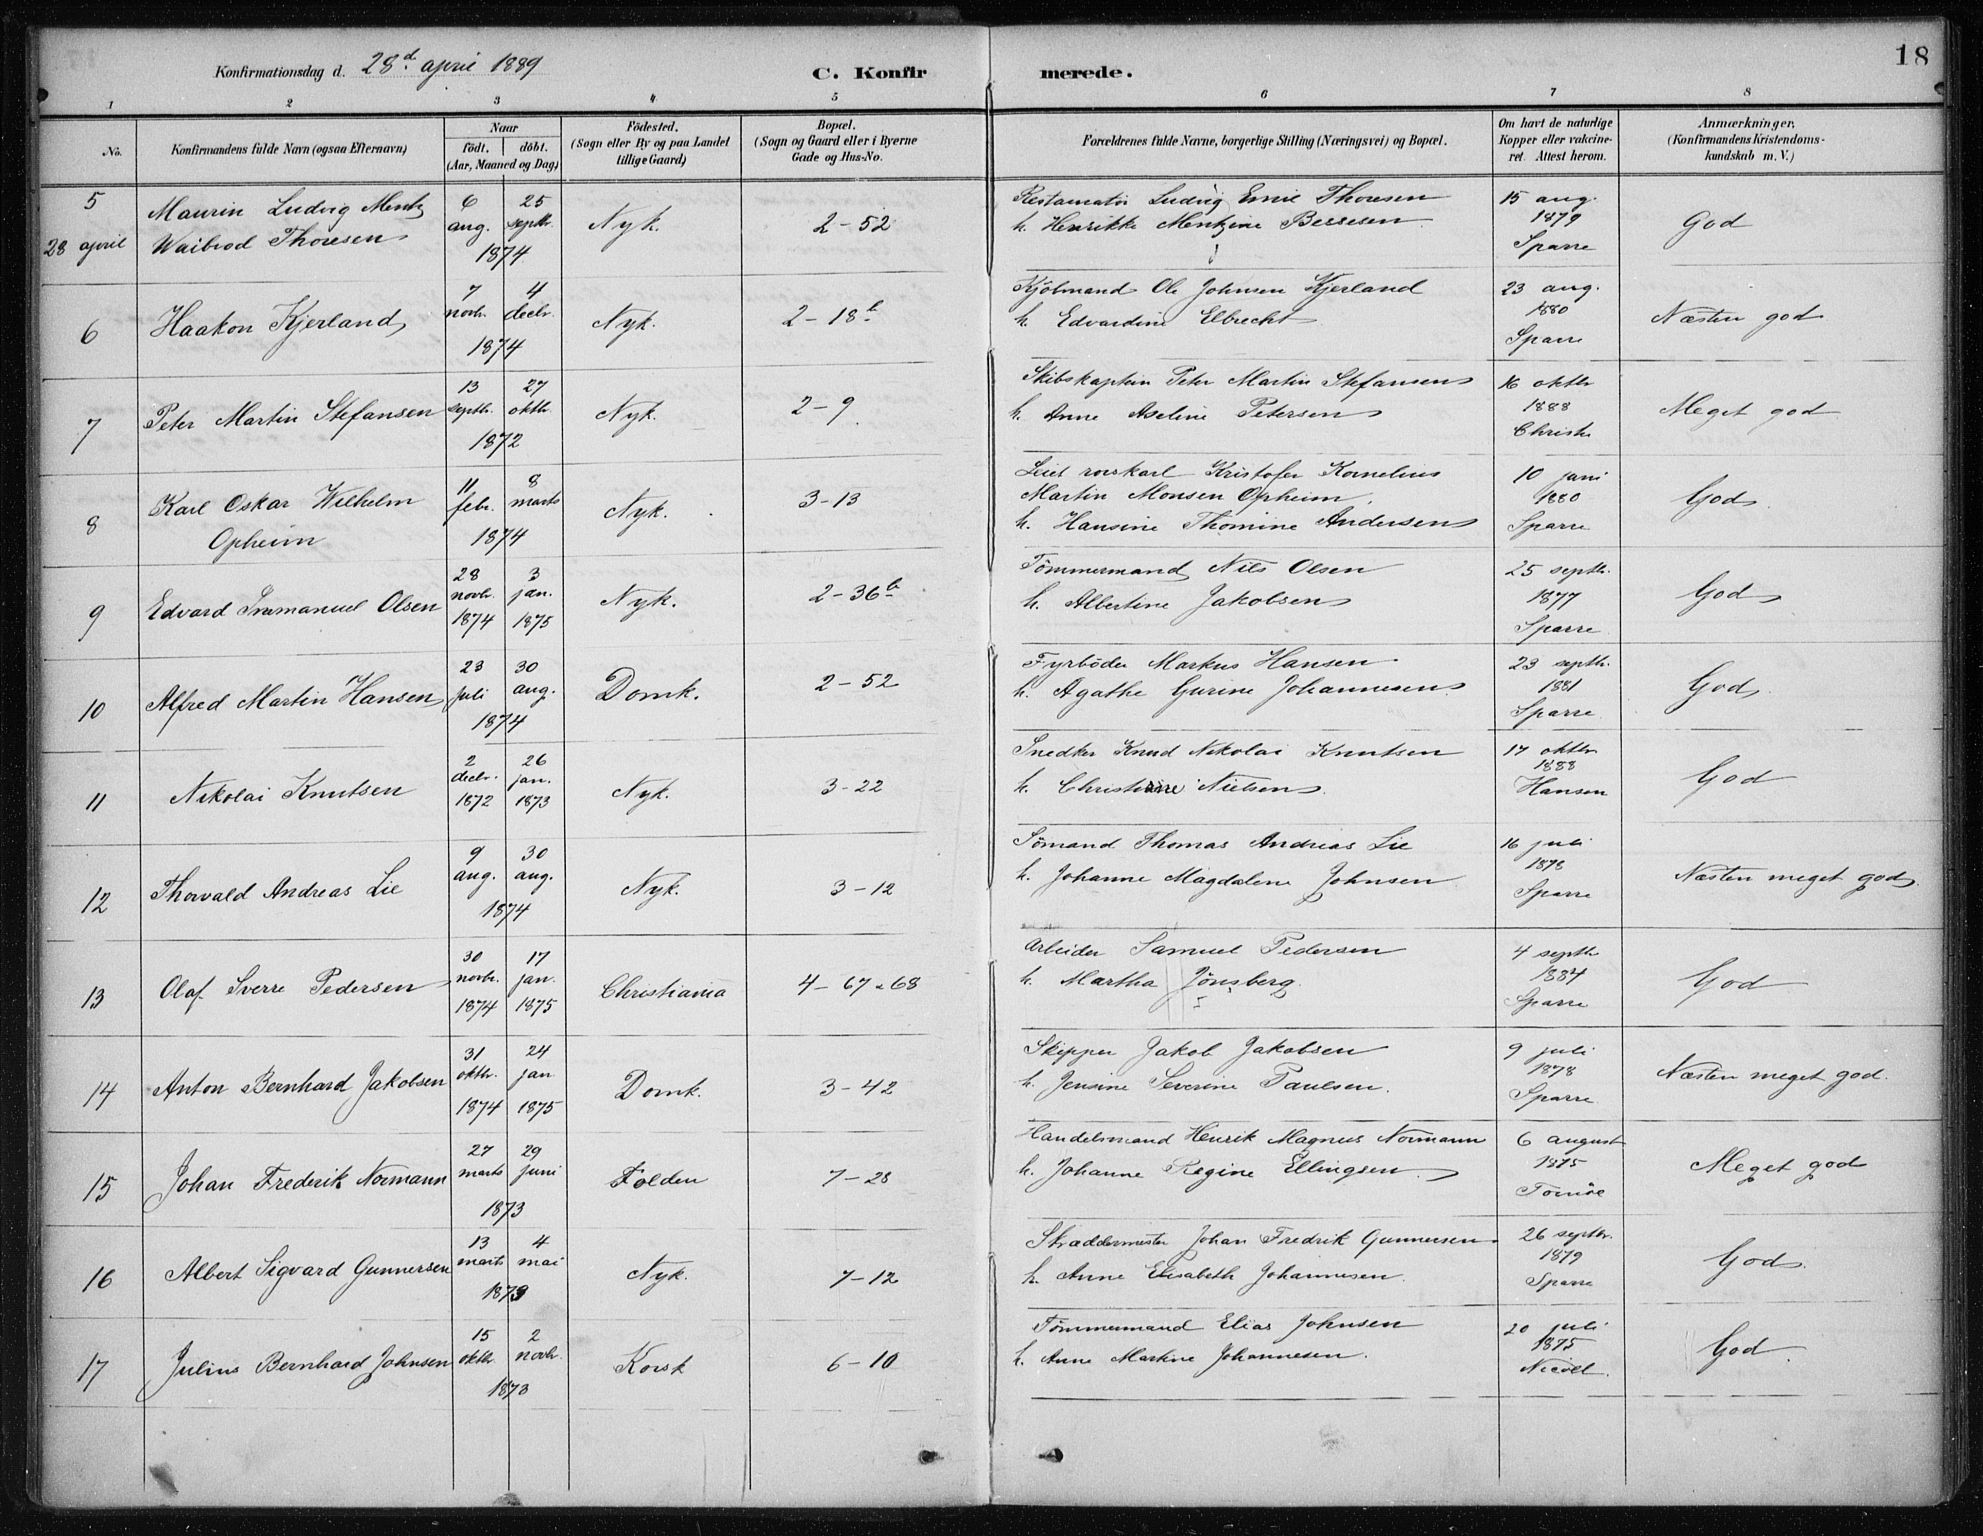 Konfirmationsdag d. 28d april 1889
C. Konfir merede.
18
1 2 3 4 5 6 7 8
No.
Konfirmandens fulde Navn (ogsaa Efternavn)
Naar
födt. döbt.
(Aar, Maaned og Dag)
Födested.
(Sogn eller By og paa Landet
tillige Gaard)
Bopæl.
(Sogn og Gaard eller i Byerne
Gade og Hus-No.
Forældrenes fulde Navne, borgerlige Stilling (Næringsvei) og Bopæl.
Om havt de naturlige
Kopper eller vakcine-
ret. Attest herom.
Anmærkninger.
(Konfirmandens Kristendoms-
kundskab m. V.)
5
28 april
Maurin Ludvig Mentz
Waibrod Thoresen
6 aug. 25 septbr. 1874
Nyk.
2-52
Restauratør Ludvig Emil Thoresen
h. Henrikke Mentzine Bessesen
15 aug. 1879 Sparre
God
6
Haakon Kjerland
7 novbr. 4 decbr. 1874
Nyk.
2-18b
Kjöbmand Ole Johnsen Kjerland
h. Edvardine Elbrecht
23 aug. 1880 Sparre
Næsten god
7
Peter Martin Stefansen
13 septbr. 27 oktbr. 1872
Nyk.
2-9
Skibskaptein Peter Martin Stefansen
h. Anne Aseline Petersen
16 oktbr 1888 Christie
Meget god
8
Karl Oskar Wilhelm
Opheim
11 febr. 8 marts 1874
Nyk.
3-13
Kristofer Kornelius
Martin Monsen Opheim
h. Hansine Thomine Andersen
10 juni 1880 Sparre
God
9
Edvard Immanuel Olsen
28 novbr. 1874 3 jan. 1875
Nyk.
2-36b
Tömmermand Nils Olsen
h. Albertine Jakobsen
25 septbr. 1877 Sparre
God
10
Alfred Martin Hansen
23 juli 30 aug. 1874
Domk.
2-52
Fyrböder Markus Hansen
h. Agathe Gurine Johannesen
23 septbr. 1881 Sparre
God
11
Nikolai Knutsen
2 decbr. 1872 26 jan. 1873
Nyk.
3-22
Snedker Knud Nikolai Knutsen
h. Christine Nielsen
17 oktbr 1888 Hansen
God
12
Thorvald Andreas Lie
9 aug. 30 aug. 1874
Nyk.
3-12
Sömand Thomas Andreas Lie
h. Johanne Magdalene Johnsen
16 juli 1878 Sparre
Næsten meget god
13
Olaf Sverre Pedersen
30 novbr. 1874 17 jan. 1875
Christiania
4-67 & 68
Arbeider Samuel Pedersen
h. Martha Jönsberg
4 septbr 1884 Sparre
God
14
Anton Bernhard Jakobsen
31 oktbr. 1874 24 jan 1875
Domk.
3-42
Skipper Jakob Jakobsen
h. Jensine Severine Paulsen
9 juli 1878 Sparre
Næsten meget god.
15
Johan Frederik Normann
27 marts 29 juni 1873
Folden
7-28
Handelsmand Henrik Magnus Normann
h. Johanne Regine Ellingsen
6 august 1875 Tornöe
Meget god
16
Albert Sigvard Gunnersen
13 marts 4 mai 1873
Nyk.
7-12
Skræddermester Johan Fredrik Gunnersen
h. Anne Elisabeth Johannesen
26 septbr. 1879 Sparre
God
17
Julius Bernhard Johnsen
15 oktbr 2 novbr. 1873
Korsk
6-10
Tömmermand Elias Johnsen
h. Anne Martine Johannesen
20 juli 1875 Nicoll
God